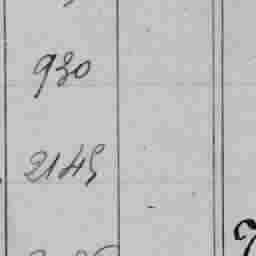 930
2145